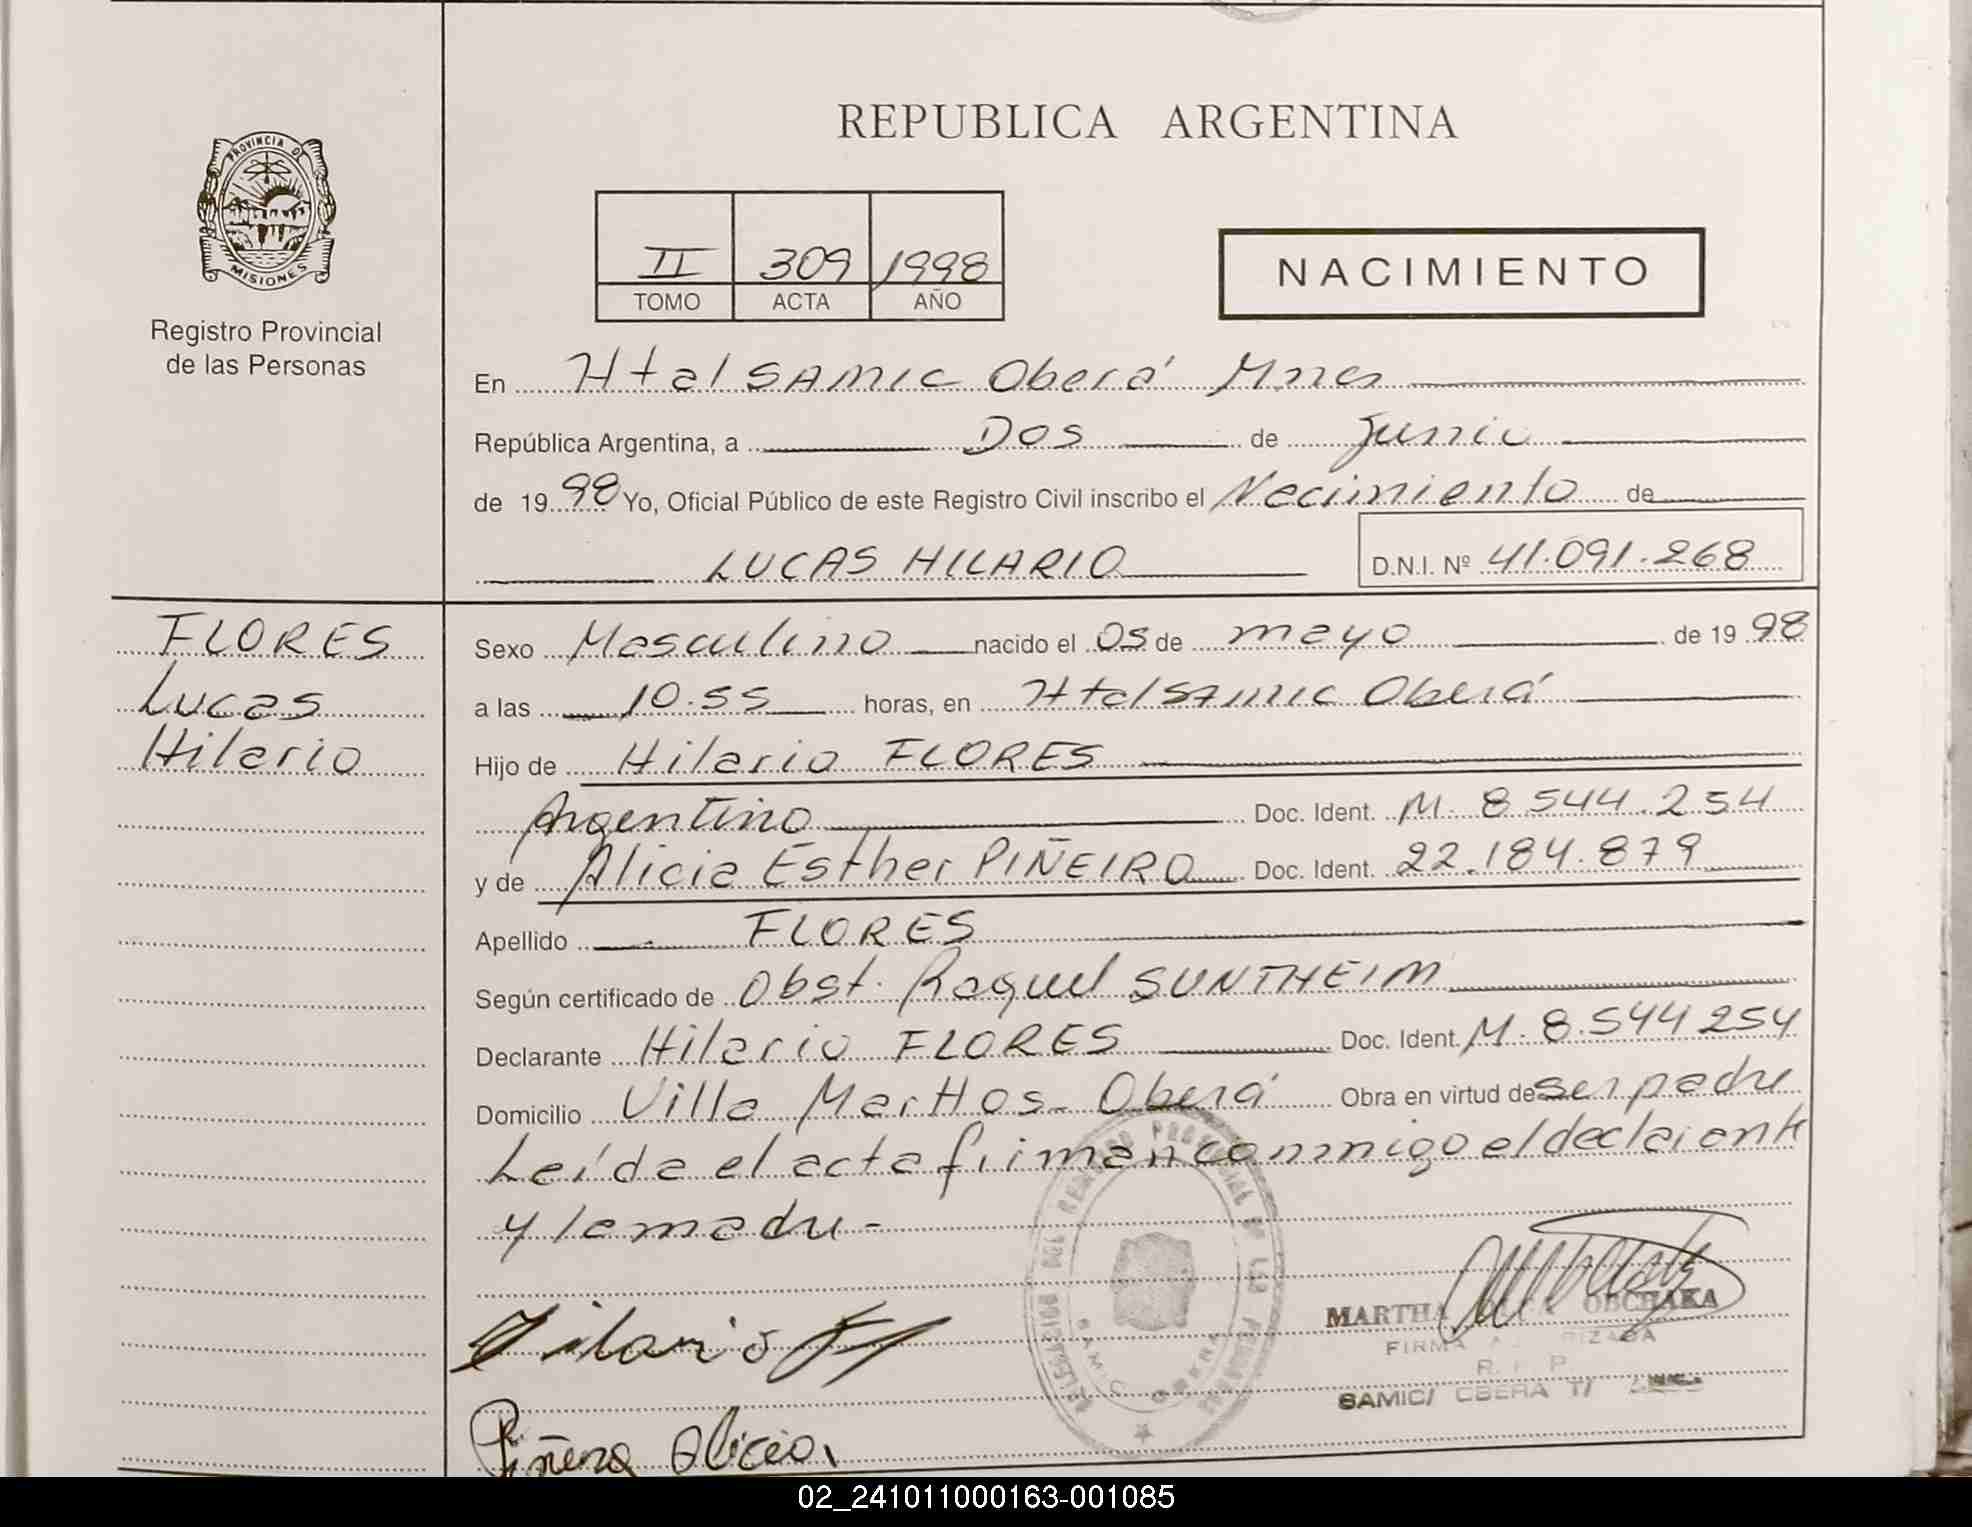 REPUBLICA ARGENTINA
PROVINCIA DE
MISIONES
Registro Provincial
de las Personas
II 309 1998
TOMO ACTA AÑO
NACIMIENTO
En Htal SAMIC Oberá Mnes
República Argentina, a Dos de Junio
de 1998 Yo, Oficial Público de este Registro Civil inscribo el Nacimiento de
LUCAS HILARIO D.N.I. Nº 41.091.268
FLORES
Lucas
Hilario
Sexo Masculino nacido el 05 de mayo de 1998
a las 10.55 horas, en Htal SAMIC Oberá
Hijo de Hilario FLORES
Argentino Doc. Ident. M. 8.544.254
y de Alicia Esther PIÑEIRO Doc. Ident. 22.184.879
Apellido FLORES
Según certificado de Obst. Raquel SUNTHEIM
Declarante Hilario FLORES Doc. Ident. M. 8.544.254
Domicilio Villa Marttos - Oberá Obra en virtud de ser padre
Leída el acta firman conmigo el declarante
y la madre -
Hilario
MARTHA OBCHAKA
FIRMA
R. P.
SAMIC/ OBERA
Alicia
02_241011000163-001085